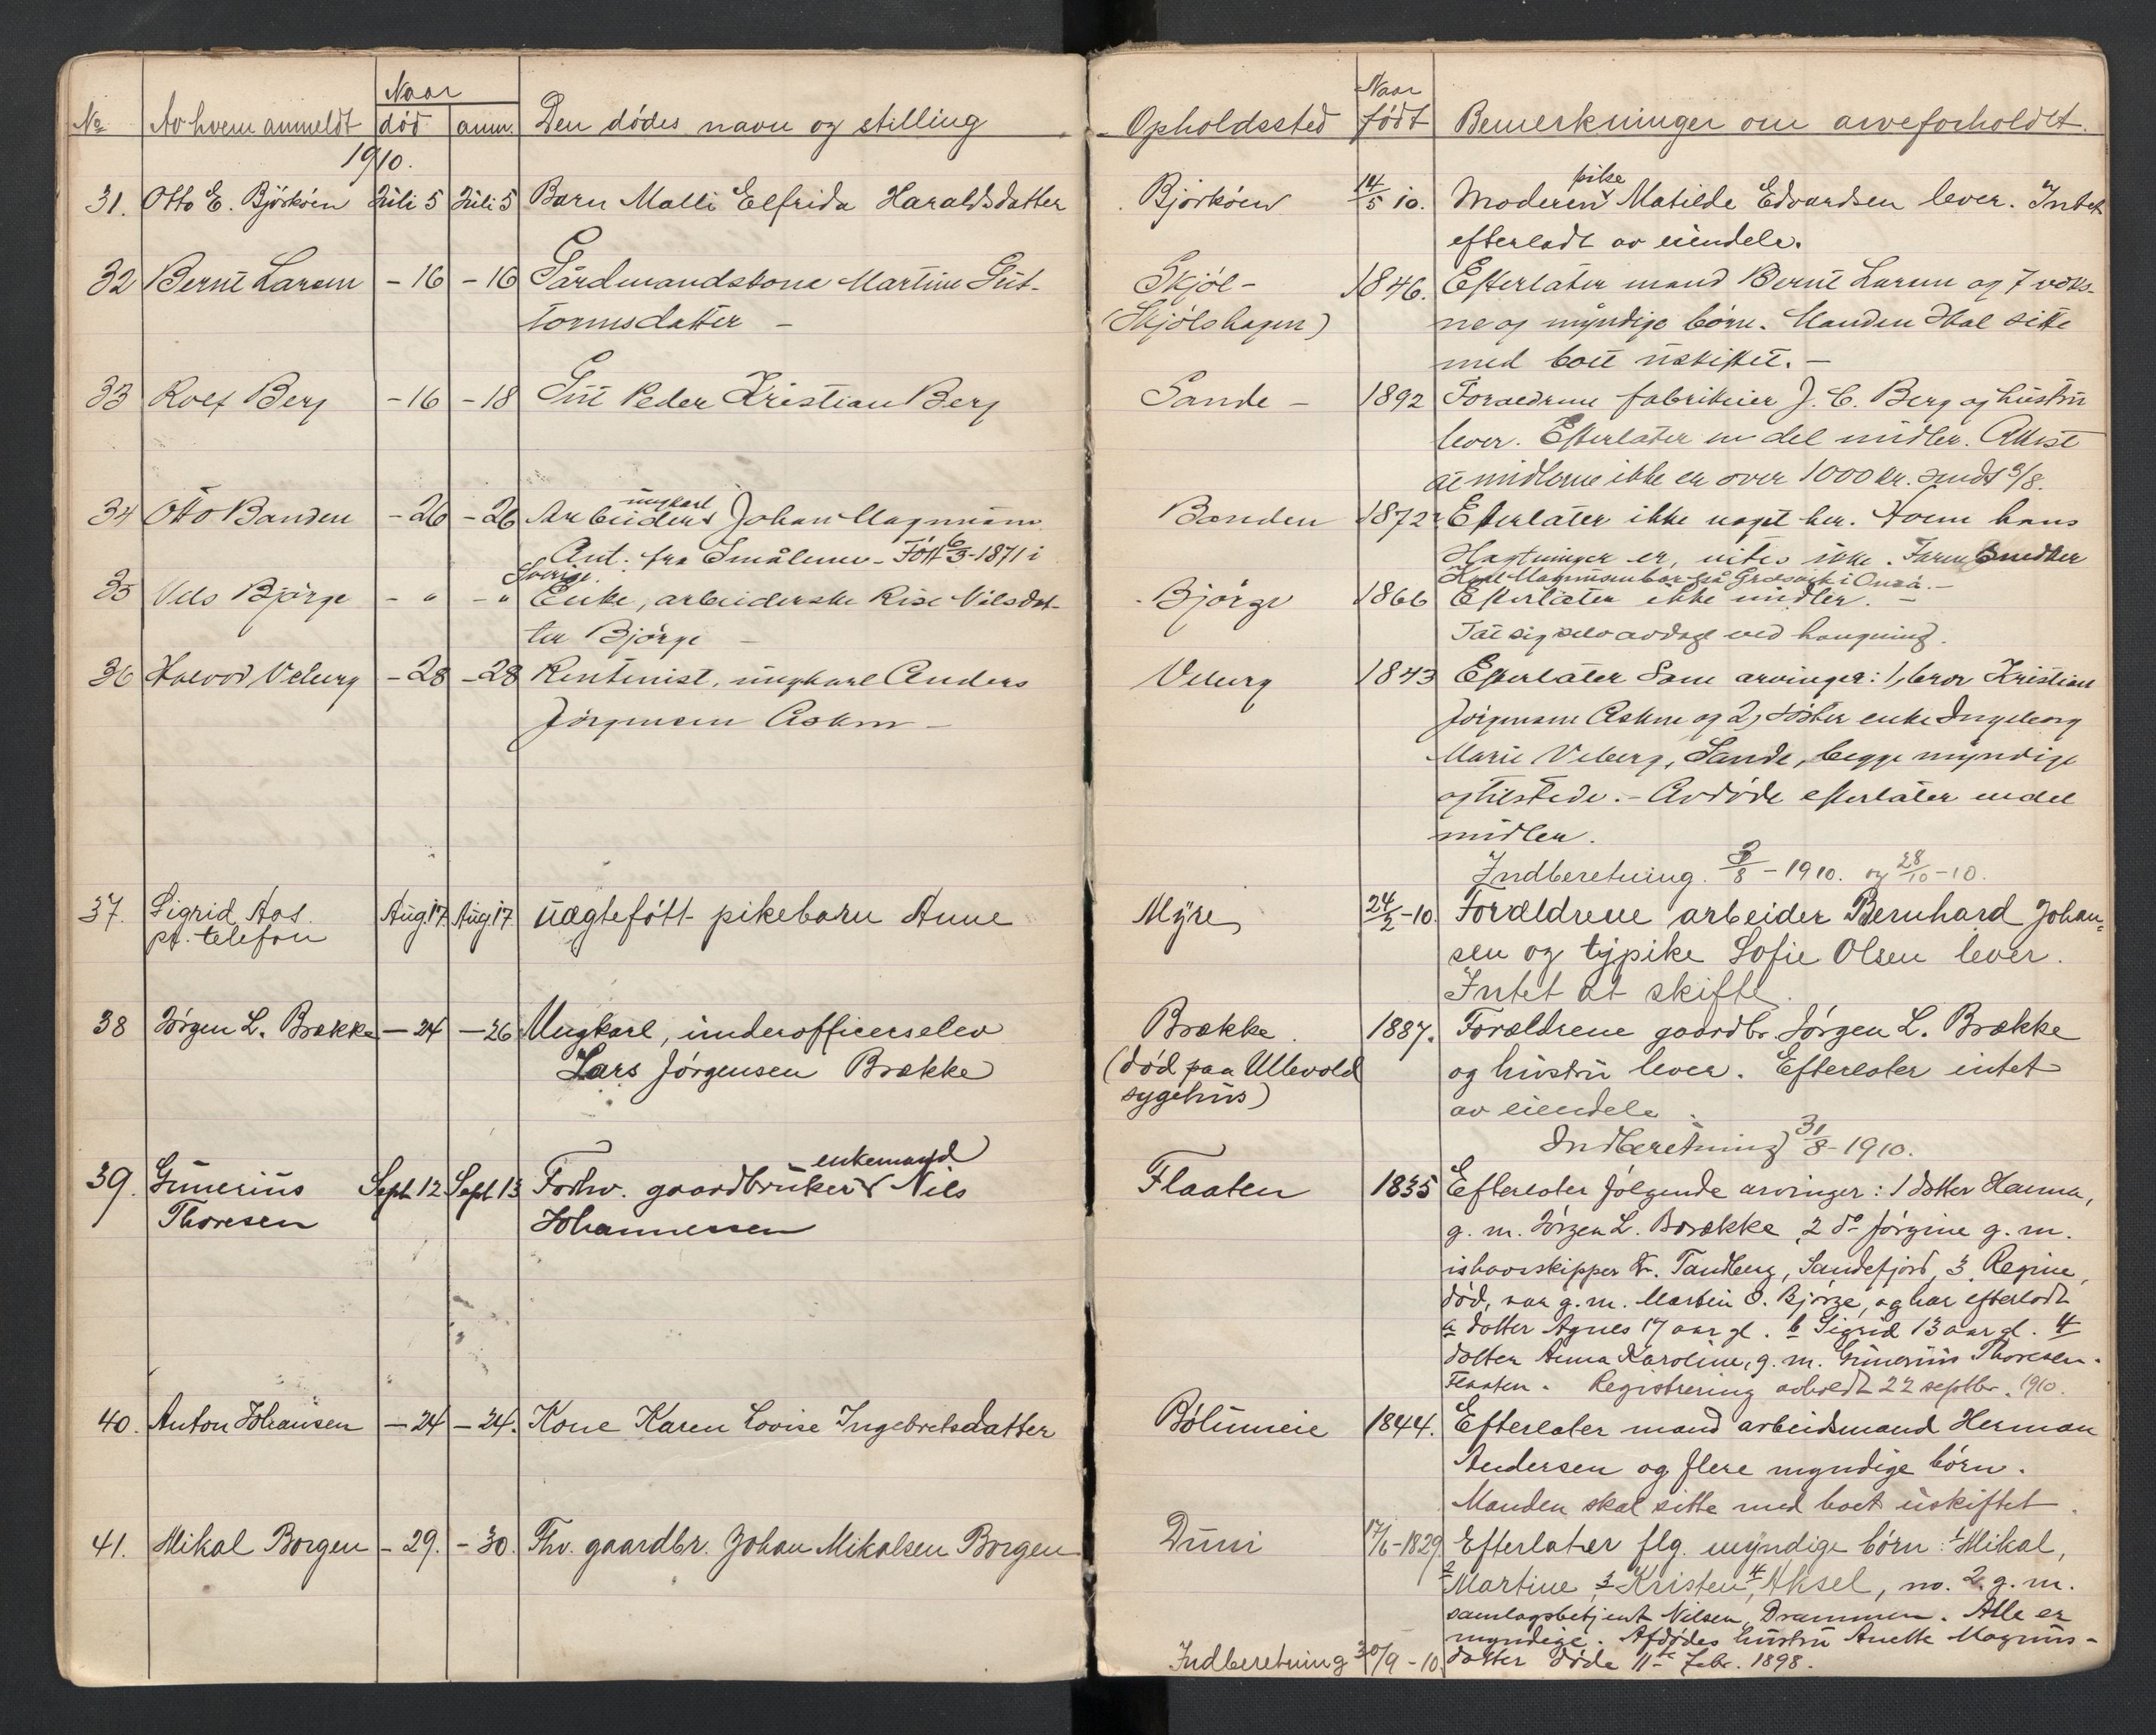 Naar
No Av hvem anmeldt død anm. Den dødes navn og stilling Opholdssted Naar født Bemerkninger om arveforholdet.
1910.
31. Otto E. Bjørkøen Juli 5 Juli 5 Barn Malli Elfrida Haraldsdatter Bjørkøen 14/5 10. Moderen pike Matilde Edvardsen lever. Intet
efterladt av eiendele.
32 Bernt Larsen - 16 - 16 Gårdmandskone Martine Gut- Skjøl- 1846. Efterlater mand Bernt Larsen og 7 voks-
tormsdatter - (Skjølshagen) ne og myndige børn. Manden skal sitte
med boet uskiftet. -
33 Rolf Berg - 16 - 18 Gut Peder Kristian Berg Sande - 1892 Foraedrene fabrikeier J. C. Berg og hustru
lever. Efterlater en del midler. Attest
at midlerne ikke er over 1000 kr. sendt 3/8.
34 Otto Banden - 26 - 26 Arbeider ungkarl Johan Magnussen Banden 1872 Efterlater ikke noget her. Hvem hans
Ant. fra Smålene - Født 6/3 - 1871 i slegtninger er, vites ikke. Faren Snedker
Sverige. Karl Magnussen bor på Græsvik i Onsø. -
35 Nels Bjørge - " - " Enke, arbeiderske Rise Nilsdat- Bjørge 1866 Efterlater ikke midler. -
ter Bjørge - Tat sig selv avdage ved hængning.
36 Halvor Veberg - 28 - 28 Rentenist, ungkarl Anders Veberg 1843 Efterlater som arvinger: 1, bror Kristian
Jørgensen Askm - Jørgensen Askm og 2, søster enke Ingeborg
Marie Veberg, Sande, begge myndige
og tilstede. - Avdøde efterlater endel
midler.
Indberetning. 3/8 - 1910. og 28/10 - 10.
37. Sigrid Aas Aug 17. Aug 17. uægtefött pikebarn Anne Myre 24/2 - 10. Forældrene arbeider Bernhard Johan-
pr. telefon sen og typike Sofie Olsen lever.
Intet at skifte.
38 Jørgen L. Brække - 24 - 26 Ungkarl, underofficerselev Brække 1887. Forældrene gaardbr. Jørgen L. Brække
Lars Jørgensen Brække (død paa Ullevold og hustru lever. Efterlater intet
sygehus) av eiendele.
Indberetning 31/8 - 1910.
39. Gunerius Sept 12 Sept 13 Forhv. gaardbruker enkemand Nils Flaaten 1835 Efterlater følgende arvinger: 1 datter Hanna,
Thoresen Johannessen g. m. Jørgen L. Brække, 2 do Jørgine g. m.
ishavsskipper Kr. Tandberg, Sandefjord, 3. Regine,
død, var g. m. Martin O. Bjørge, og har efterladt
a datter Agnes 17 aar gl. b Sigrid 13 aar gl. 4
datter Anna Karoline, g. m. Gunerius Thoresen.
Flaaten. Registrering avholdt 22 septbr. 1910.
40. Anton Johansen - 24 - 24. Kone Karen Lovise Ingebretsdatter Bølumeie 1844. Efterlater mand arbeidsmand Herman
Andersen og flere myndige børn.
Manden skal sitte med boet uskiftet.
41. Mikal Borgen - 29. - 30. Fhv. gaardbr. Johan Mikalsen Borgen Duni 17/6 - 1829. Efterlater flg. myndige børn: 1 Mikal,
2 Martine, 3 Kristen, 4 Aksel, no. 2. g. m.
samlagsbetjent Nilsen, Drammen. Alle er
myndige. Afdødes hustru Anette Magnus-
Indberetning 30/9 - 10. datter døde 11te Febr. 1898.